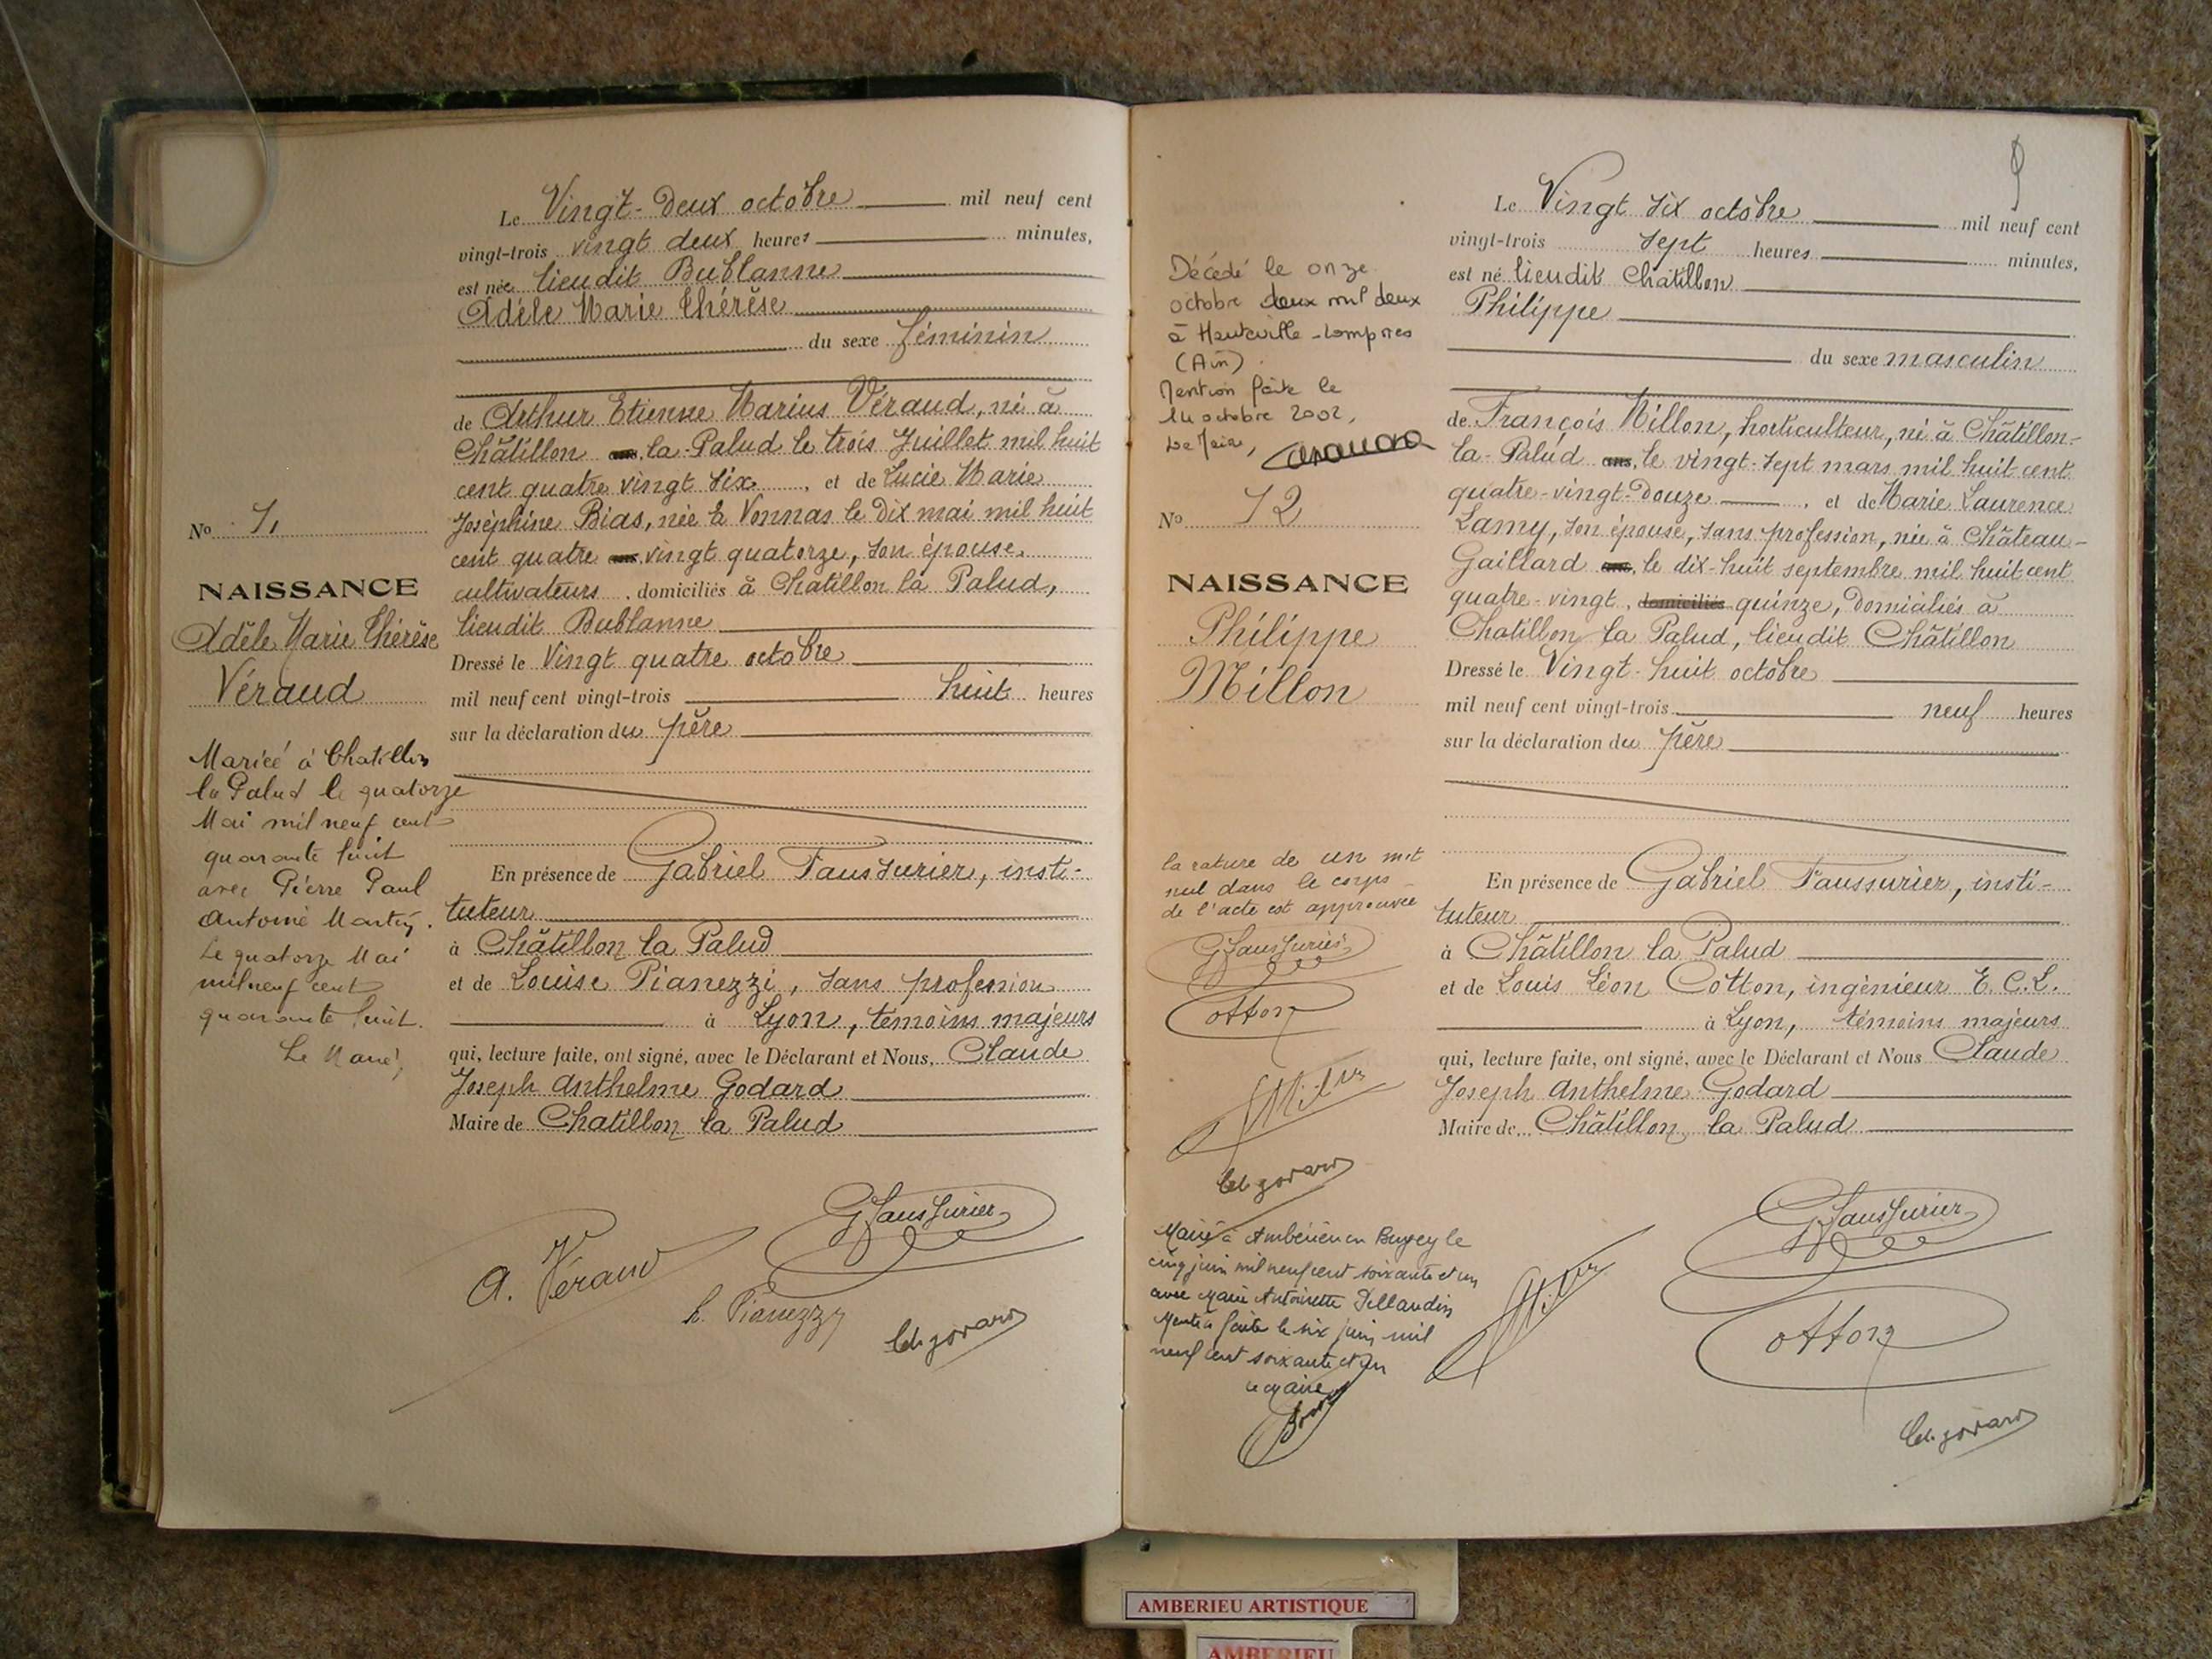 Le Vingt-Deux octobre mil neuf cent
vingt-trois vingt deux heures minutes,
est née lieudit Bublanne
Adèle Marie Thérèse
du sexe féminin
de Arthur Etienne Marius Véraud, né à
Châtillon la-Palud le trois Juillet mil huit
cent quatre vingt six, et de Lucie Marie
Joséphine Bias, née à Vonnas le Dix mai mil huit
cent quatre vingt quatorze, son épouse
cultivateurs, domiciliés à Chatillon la Palud,
lieudit Bublanne
Dressé le Vingt quatre octobre
mil neuf cent vingt-trois huit heures
sur la déclaration du père
En présence de Gabriel Faussurier, insti-
tuteur
à Châtillon la Palud
et de Louise Pianezzi, sans profession
à Lyon, témoins majeurs
qui, lecture faite, ont signé, avec le Déclarant et Nous, Claude
Joseph Anthelme Godard
Maire de Chatillon la Palud
A. Véraud
G Faussurier
L. Pianezzi
No 71
NAISSANCE
Adèle Marie Thérèse
Véraud
Mariée à Chatillon
la Palud le quatorze
Mai mil neuf cent
quarante huit
avec Pierre Paul
Antoine
Le quatorze Mai
mil neuf cent
quarante huit.
Le Maire,
Décédé le onze
octobre deux mil deux
à Hauteville-Lompnes
(Ain)
Mention faite le
14 octobre 2002,
Le Maire,
No 72
NAISSANCE
Philippe
Millon
la rature de un mot
nul dans le corps
de l'acte est approuvée
G Faussurier
Cotton
Marié à Ambérieu en Bugey le
cinq juin mil neuf cent soixante et un
avec Marie Antoinette
Mention faite le six juin mil
neuf cent soixante et un
Le Maire
Le Vingt six octobre mil neuf cent
vingt-trois sept heures minutes,
est né lieudit Châtillon
Philippe
du sexe masculin
de François Millon, horticulteur, né à Châtillon-
la-Palud le vingt-sept mars mil huit cent
quatre-vingt-douze, et de Marie Laurence
Lamy, son épouse, sans profession, née à Château-
Gaillard le dix-huit septembre mil huit cent
quatre-vingt, domiciliés quinze, domiciliés à
Chatillon la Palud, lieudit Châtillon
Dressé le Vingt-huit octobre
mil neuf cent vingt-trois neuf heures
sur la déclaration du père
En présence de Gabriel Faussurier, insti-
tuteur
à Châtillon la Palud
et de Louis Léon Cotton, ingénieur E. C. L.
à Lyon, témoins majeurs
qui, lecture faite, ont signé, avec le Déclarant et Nous Claude
Joseph Anthelme Godard
Maire de Châtillon la Palud
G Faussurier
Cotton
AMBERIEU ARTISTIQUE
AMBERIEU